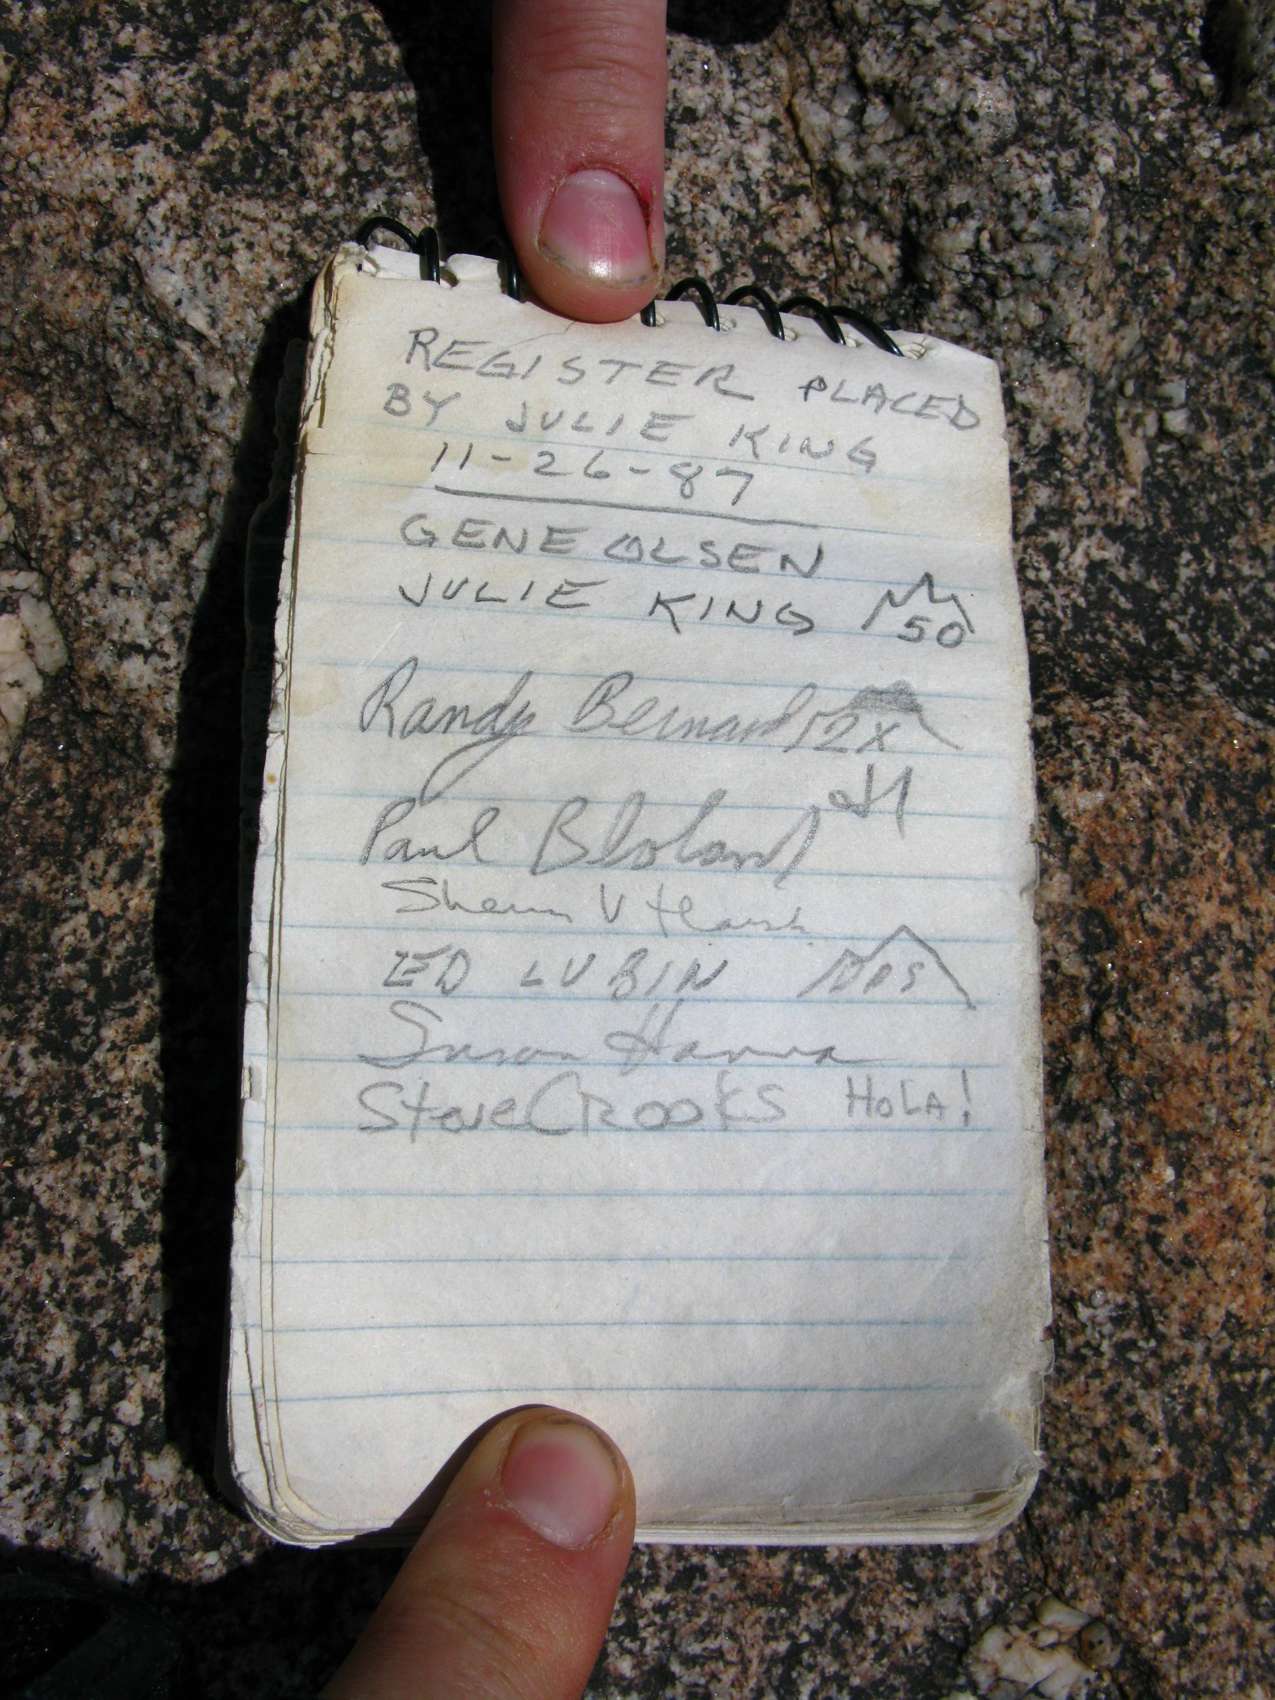 REGISTER PLACED
BY JULIE KING
11-26-87
GENE OLSEN
JULIE KING 50
Randy Bernard 12x
Paul Bloland
ED LUBIN DPS
Susan Hanna
Steve CRooKS HoLA!